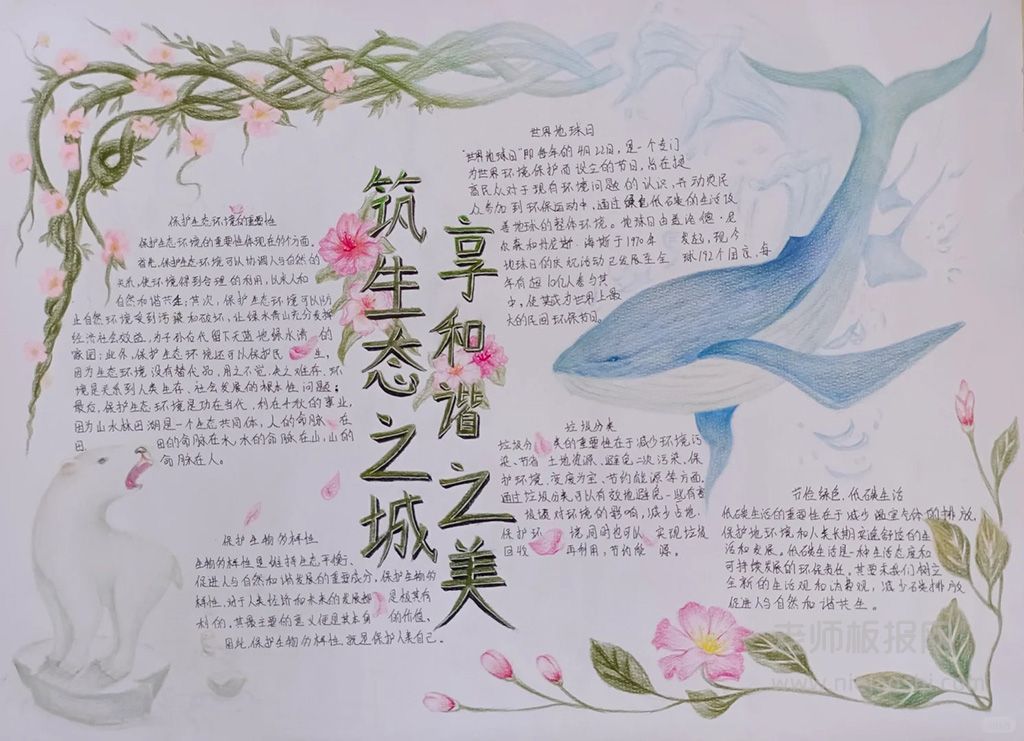 筑生态之城
享和谐之美
保护生态环境的重要性
保护生态环境的重要性体现在的个方面。
首先,保护生态环境可以协调人与自然的
关系,使环境得到合理的利用,以求人和
自然和谐共生;其次,保护生态环境可以防
止自然环境受到污染和破坏,让绿水青山充分发挥
经济社会效益,为子孙后代留下天蓝地绿水清的
家园;此外,保护生态环境还可以保护民生,
因为生态环境没有替代品,用之不觉,失之难存,环
境是关系到人类生存、社会发展的根本性问题;
最后,保护生态环境是功在当代,利在千秋的事业,
因为山水林田湖是一个生态共同体,人的命脉在
田,田的命脉在水,水的命脉在山,山的
命脉在人。
保护生物多样性
生物多样性是维持生态平衡、
促进人与自然和谐发展的重要成分,保护生物多
样性,对于人类经济和未来的发展都是极其有
利的,其最主要的意义便是其本身的价值,
因此,保护生物多样性,就是保护人类自己。
世界地球日
"世界地球日"即每年的4月22日,是一个专门
为世界环境保护而设立的节日,旨在提
高民众对于现有环境问题的认识,并动员民
众参加到环保运动中,通过绿色低碳的生活改
善地球的整体环境。地球日由盖洛德·尼
尔森和丹尼斯·海斯于1970年发起,现今
地球日的庆祝活动已发展至全球192个国家,每
年有超10亿人参与其
中,使其成为世界上最
大的民间环保节日。
垃圾分类
垃圾分类的重要性在于减少环境污
染、节省土地资源、避免二次污染,保
护环境、变废为宝、节约能源等方面,
通过垃圾分类可以有效地避免一些有害
垃圾对环境的影响,减少占地,
保护环境同时也可以实现垃圾
回收再利用,节约能源。
节俭绿色,低碳生活
低碳生活的重要性在于减少温室气体的排放,
保护地环境和人类长期实延舒适的生
活和发展。低碳生活是一种生活态度和
可持续发展的环保责任,其要求我们树立
全新的生活观和消费观,减少碳排放
促进人与自然和谐共生。
老师板报网